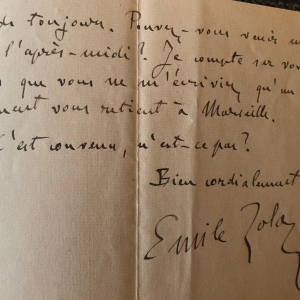 de toujours. Pouvez-vous venir
l'après-midi? Je compte sur vo
que vous ne m'écriviez qu'un
vous retient à Marseille.
C'est convenu, n'est-ce pas?
Bien cordialement
Emile Zola